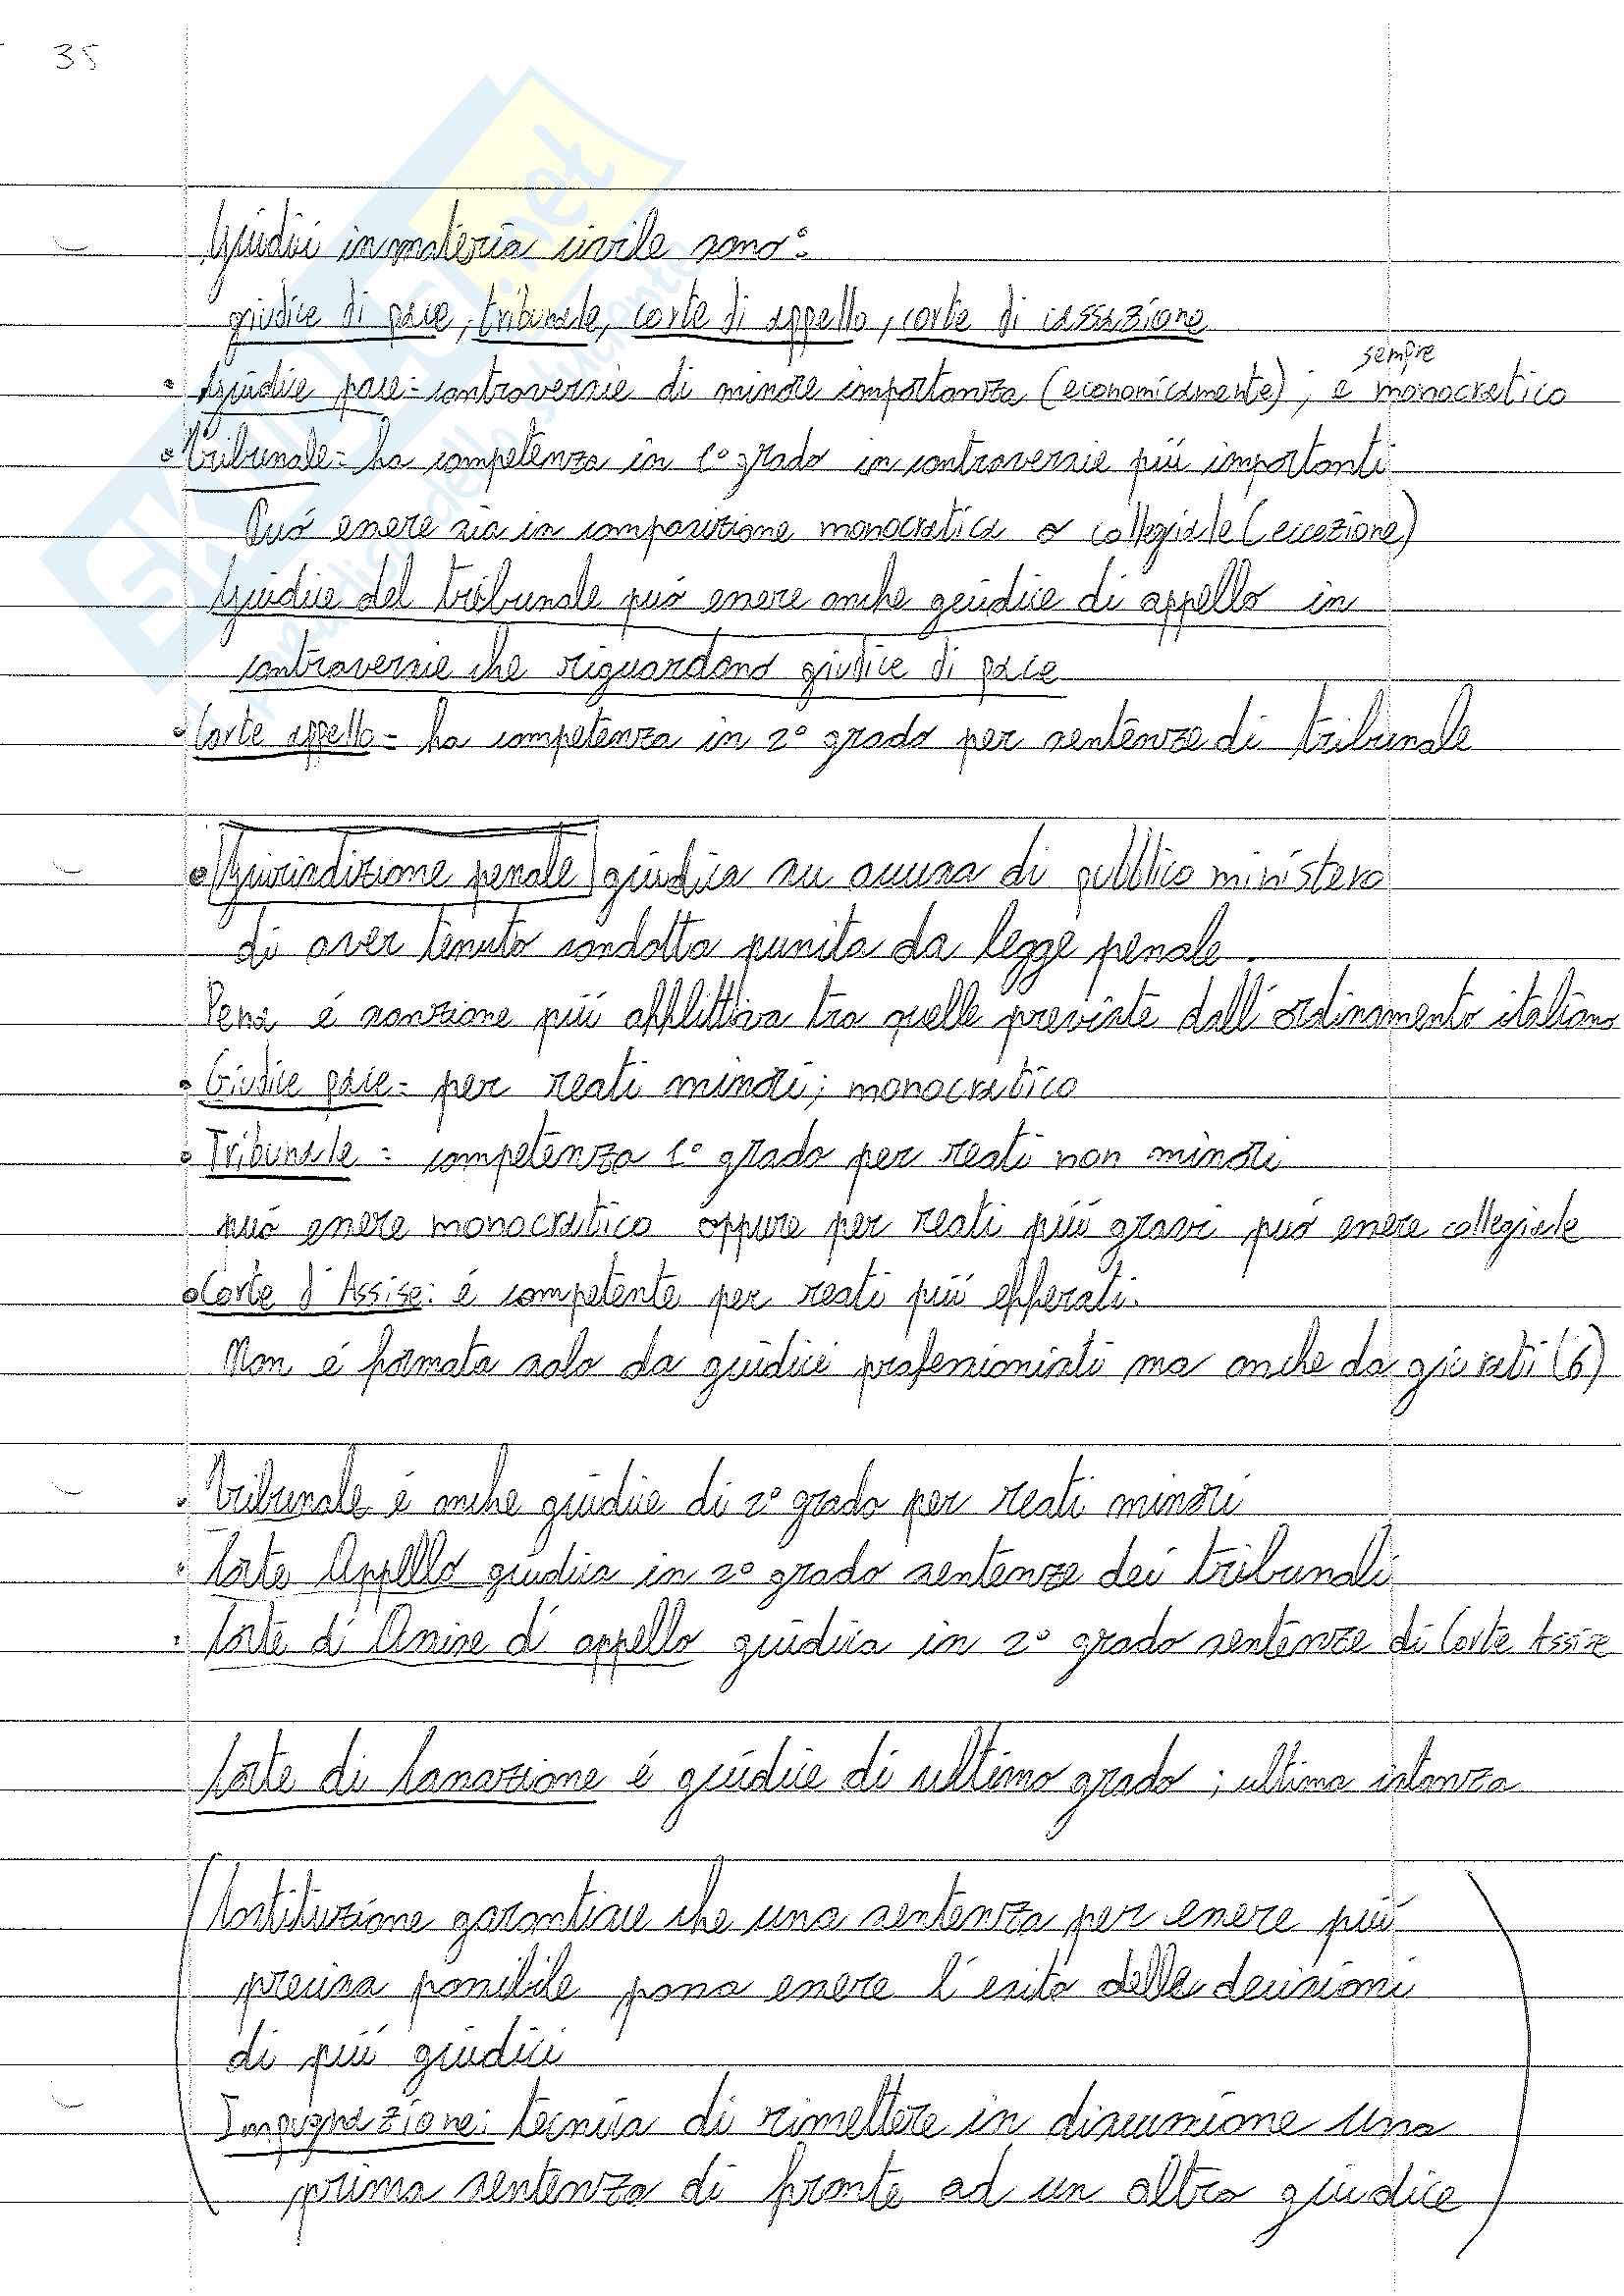 35
Giudici in materia civile sono:
giudice di pace, tribunale, corte di appello, corte di cassazione
sempre
• Giudice pace = controversie di minore importanza (economicamente); è monocratico
• Tribunale = ha competenza in 1° grado in controversie più importanti
Può essere sia in composizione monocratica o collegiale (eccezione)
Giudice del tribunale può essere anche giudice di appello in
controversie che riguardano giudice di pace
• Corte appello = ha competenza in 2° grado per sentenze di tribunale
• Giurisdizione penale giudica su accusa di pubblico ministero
di aver tenuto condotta punita da legge penale.
Pena è sanzione più afflittiva tra quelle previste dall'ordinamento italiano
• Giudice pace = per reati minori; monocratico
• Tribunale = competenza 1° grado per reati non minori
può essere monocratico oppure per reati più gravi può essere collegiale
• Corte d'Assise: è competente per reati più efferati.
Non è formata solo da giudici professionisti ma anche da giurati (6)
• Tribunale è anche giudice di 2° grado per reati minori
• Corte Appello giudica in 2° grado sentenze dei tribunali
• Corte di Assise d'appello giudica in 2° grado sentenze di Corte Assise
Corte di Cassazione è giudice di ultimo grado; ultima istanza
(Costituzione garantisce che una sentenza per essere più
precisa possibile possa essere l'esito delle decisioni
di più giudici
Impugnazione: tecnica di rimettere in discussione una
prima sentenza di fronte ad un altro giudice)